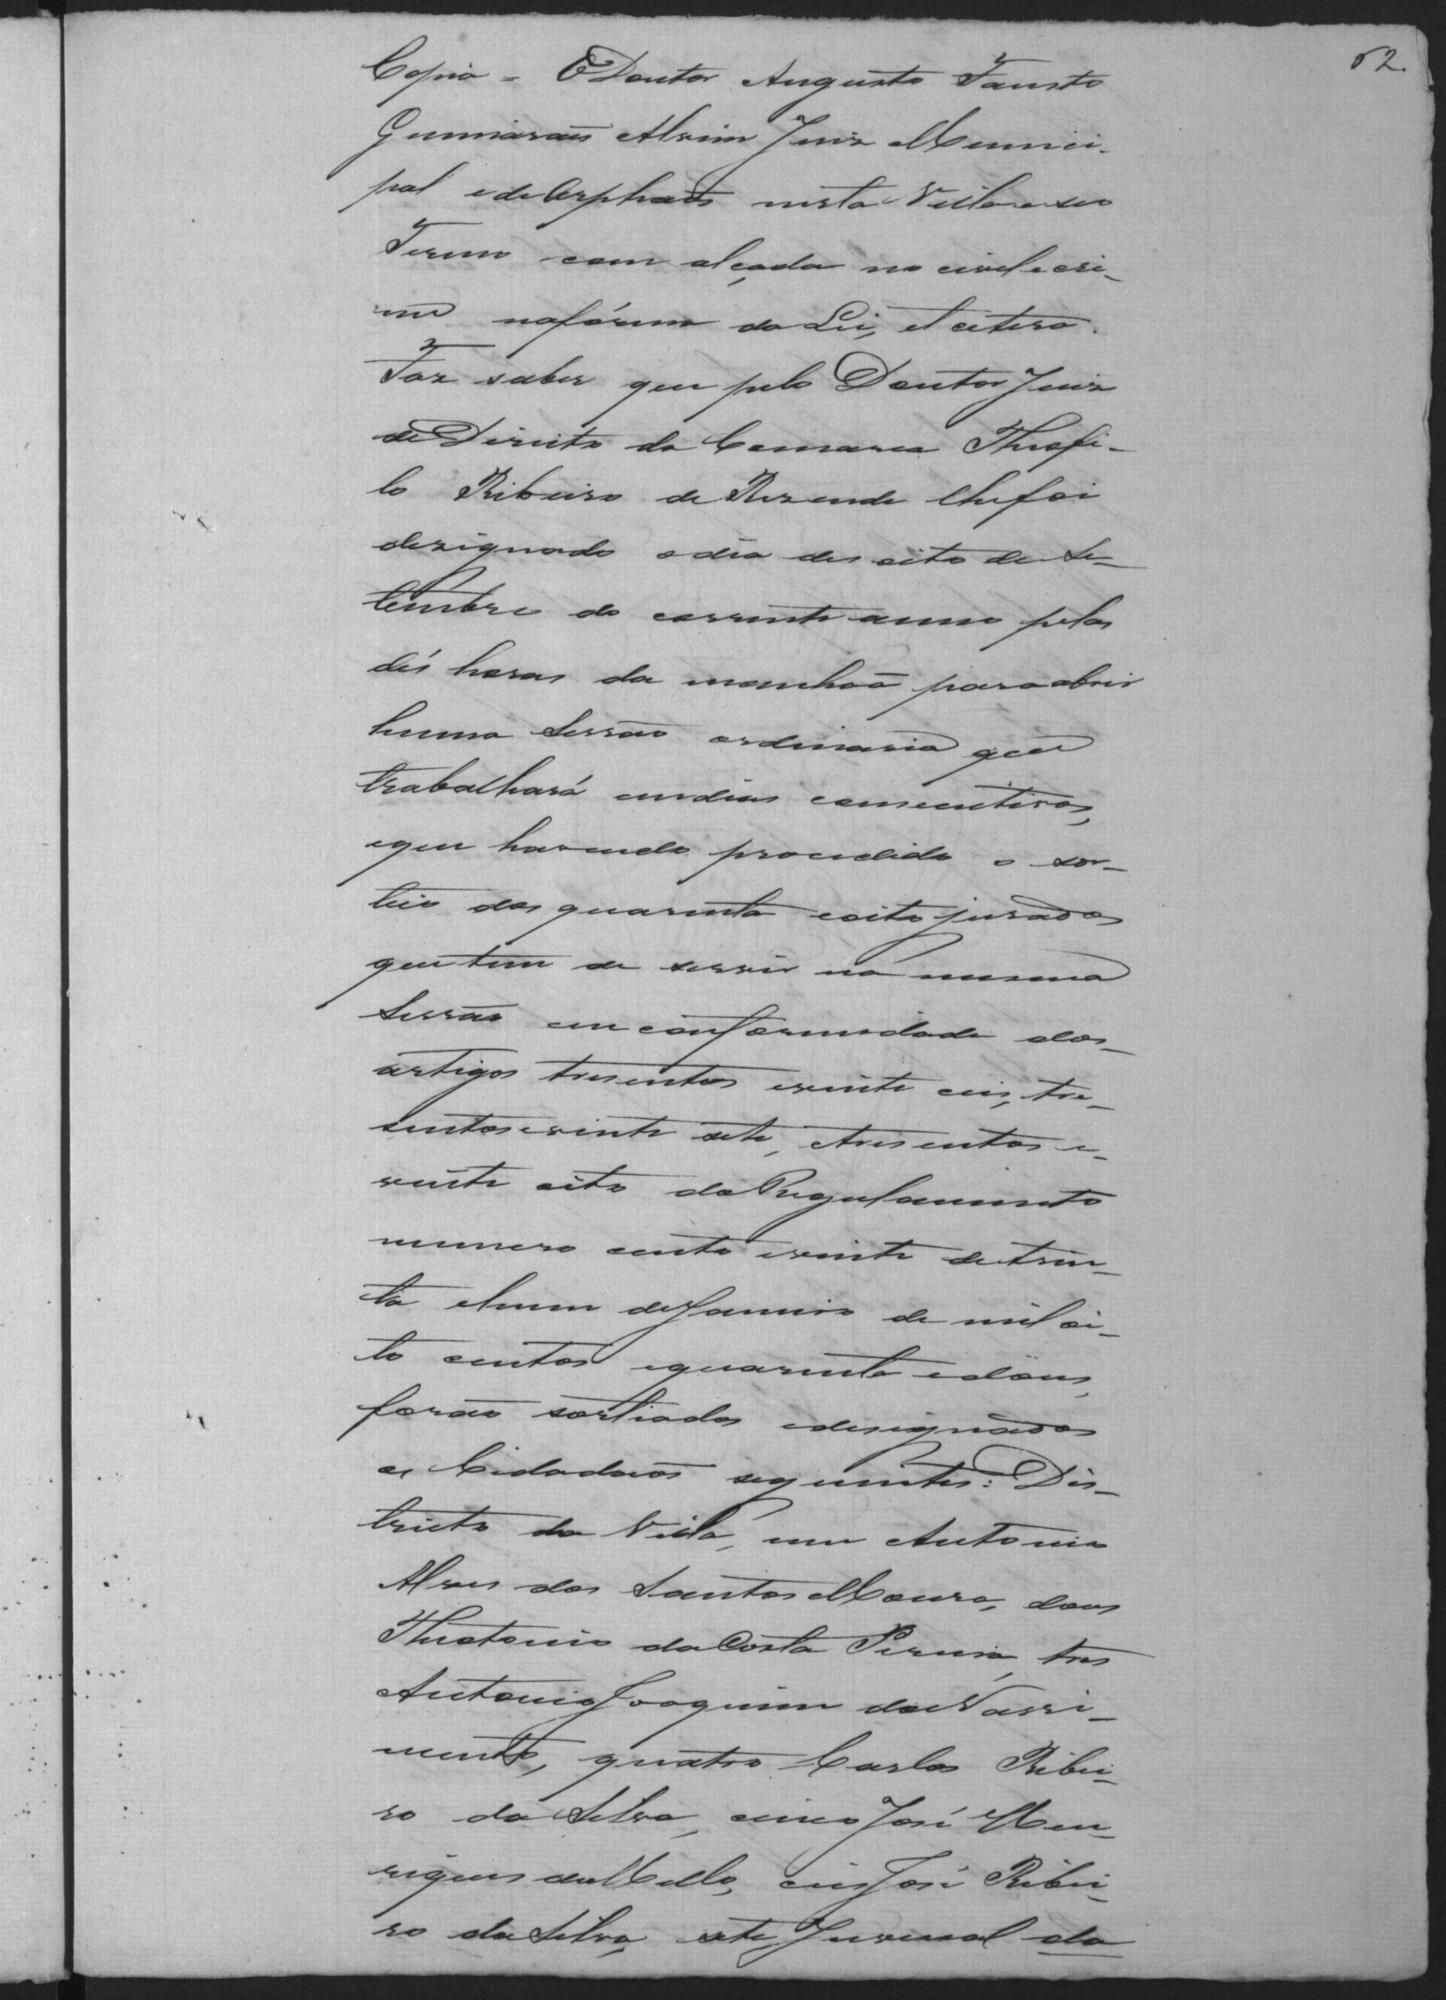 62.
Copia = O Doutor Augusto Fausto
Guimarães Alvim Juiz Munici-
pal e de Orphaõs nesta Villa e seo
Termo com alçada no civel e cri-
me na fórma da Lei, et cetera.
Faz saber que pelo Doutor Juiz
de Direito da Comarca Theofi-
lo Ribeiro de Rezende lhe foi
designado o dia des oito de Se-
tembro do corrente anno pelas
dés horas da manhaã para abrir
huma Sessaõ ordinaria que
trabalhará em dias consecutivos,
e que havendo procedido o sor-
teio dos quarenta e oito jurados
que tem de servir na mesma
Sessaõ em conformidade dos
artigos tresentos e vinte eis, tre-
sentos e vinte sete, e tresentos e
vinte oito do Regulamento
numero cento e vinte de trin-
ta e hum de Janeiro de mil oi-
to centos e quarenta e dous,
foraõ sorteados e designados
os Cidadaõs seguintes: Dis-
tricto da Villa, um Antonio
Alves dos Santos Moura, dous
Theotonio da Costa Pereira, tres
Antonio Joaquim do Nasci-
mento, quatro Carlos Ribei-
ro da Silva, cinco José Hen-
riques de Mello, eis José Ribei-
ro da Silva, sete Juvenal da